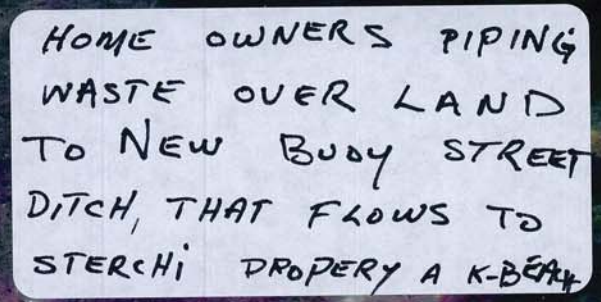 HOME OWNERS PIPING
WASTE OVER LAND
TO NEW BUOY STREET
DITCH, THAT FLOWS TO
STERCHI PROPERY A K-BEACH